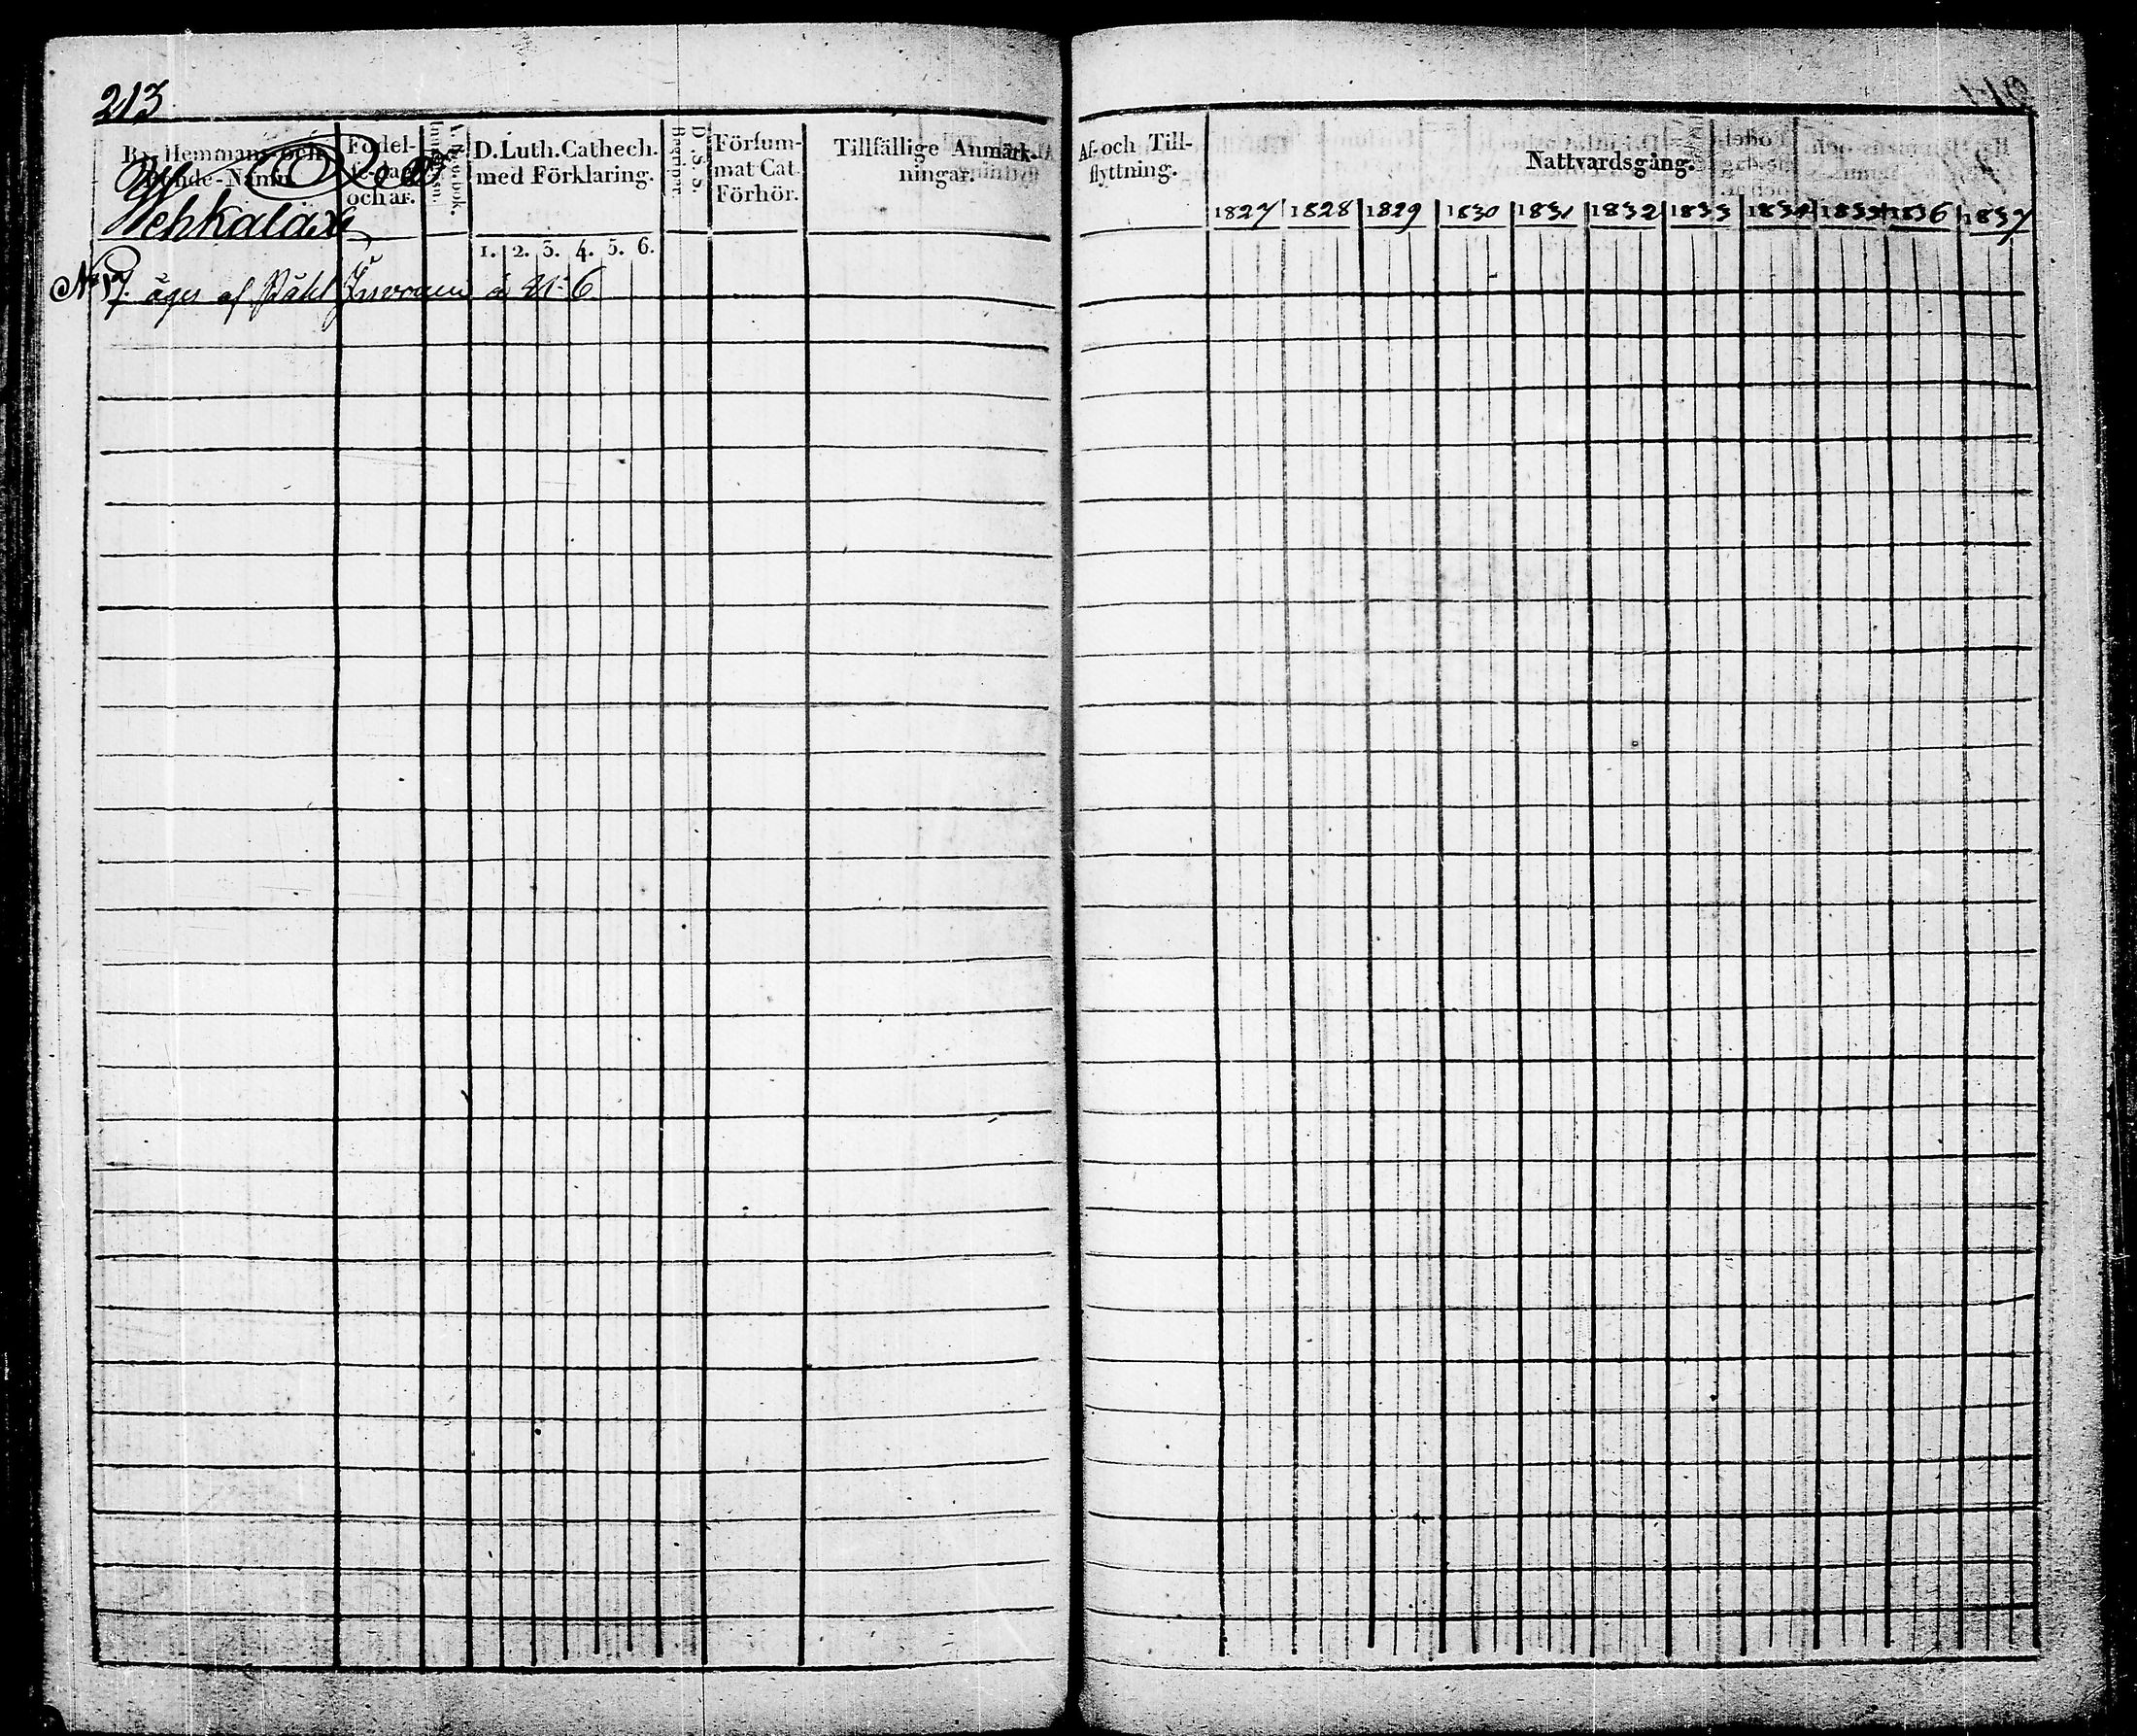 213
By- Hemmans- och Bonde-Namn.
Födel-
och år.
D. Luth. Cathech. med Förklaring.
1. 2. 3. 4. 5. 6.
D. S. S. Begrepp.
Försum-
mat Cat.
Förhör.
Tillfällige Anmärk-
ningar.
Wehkalax
No 17. äges af Påhl å No 6
Af- och Till-
flyttning.
Nattvardsgång.
1827 1828 1829 1830 1831 1832 1833 1834 1835 1836 1837